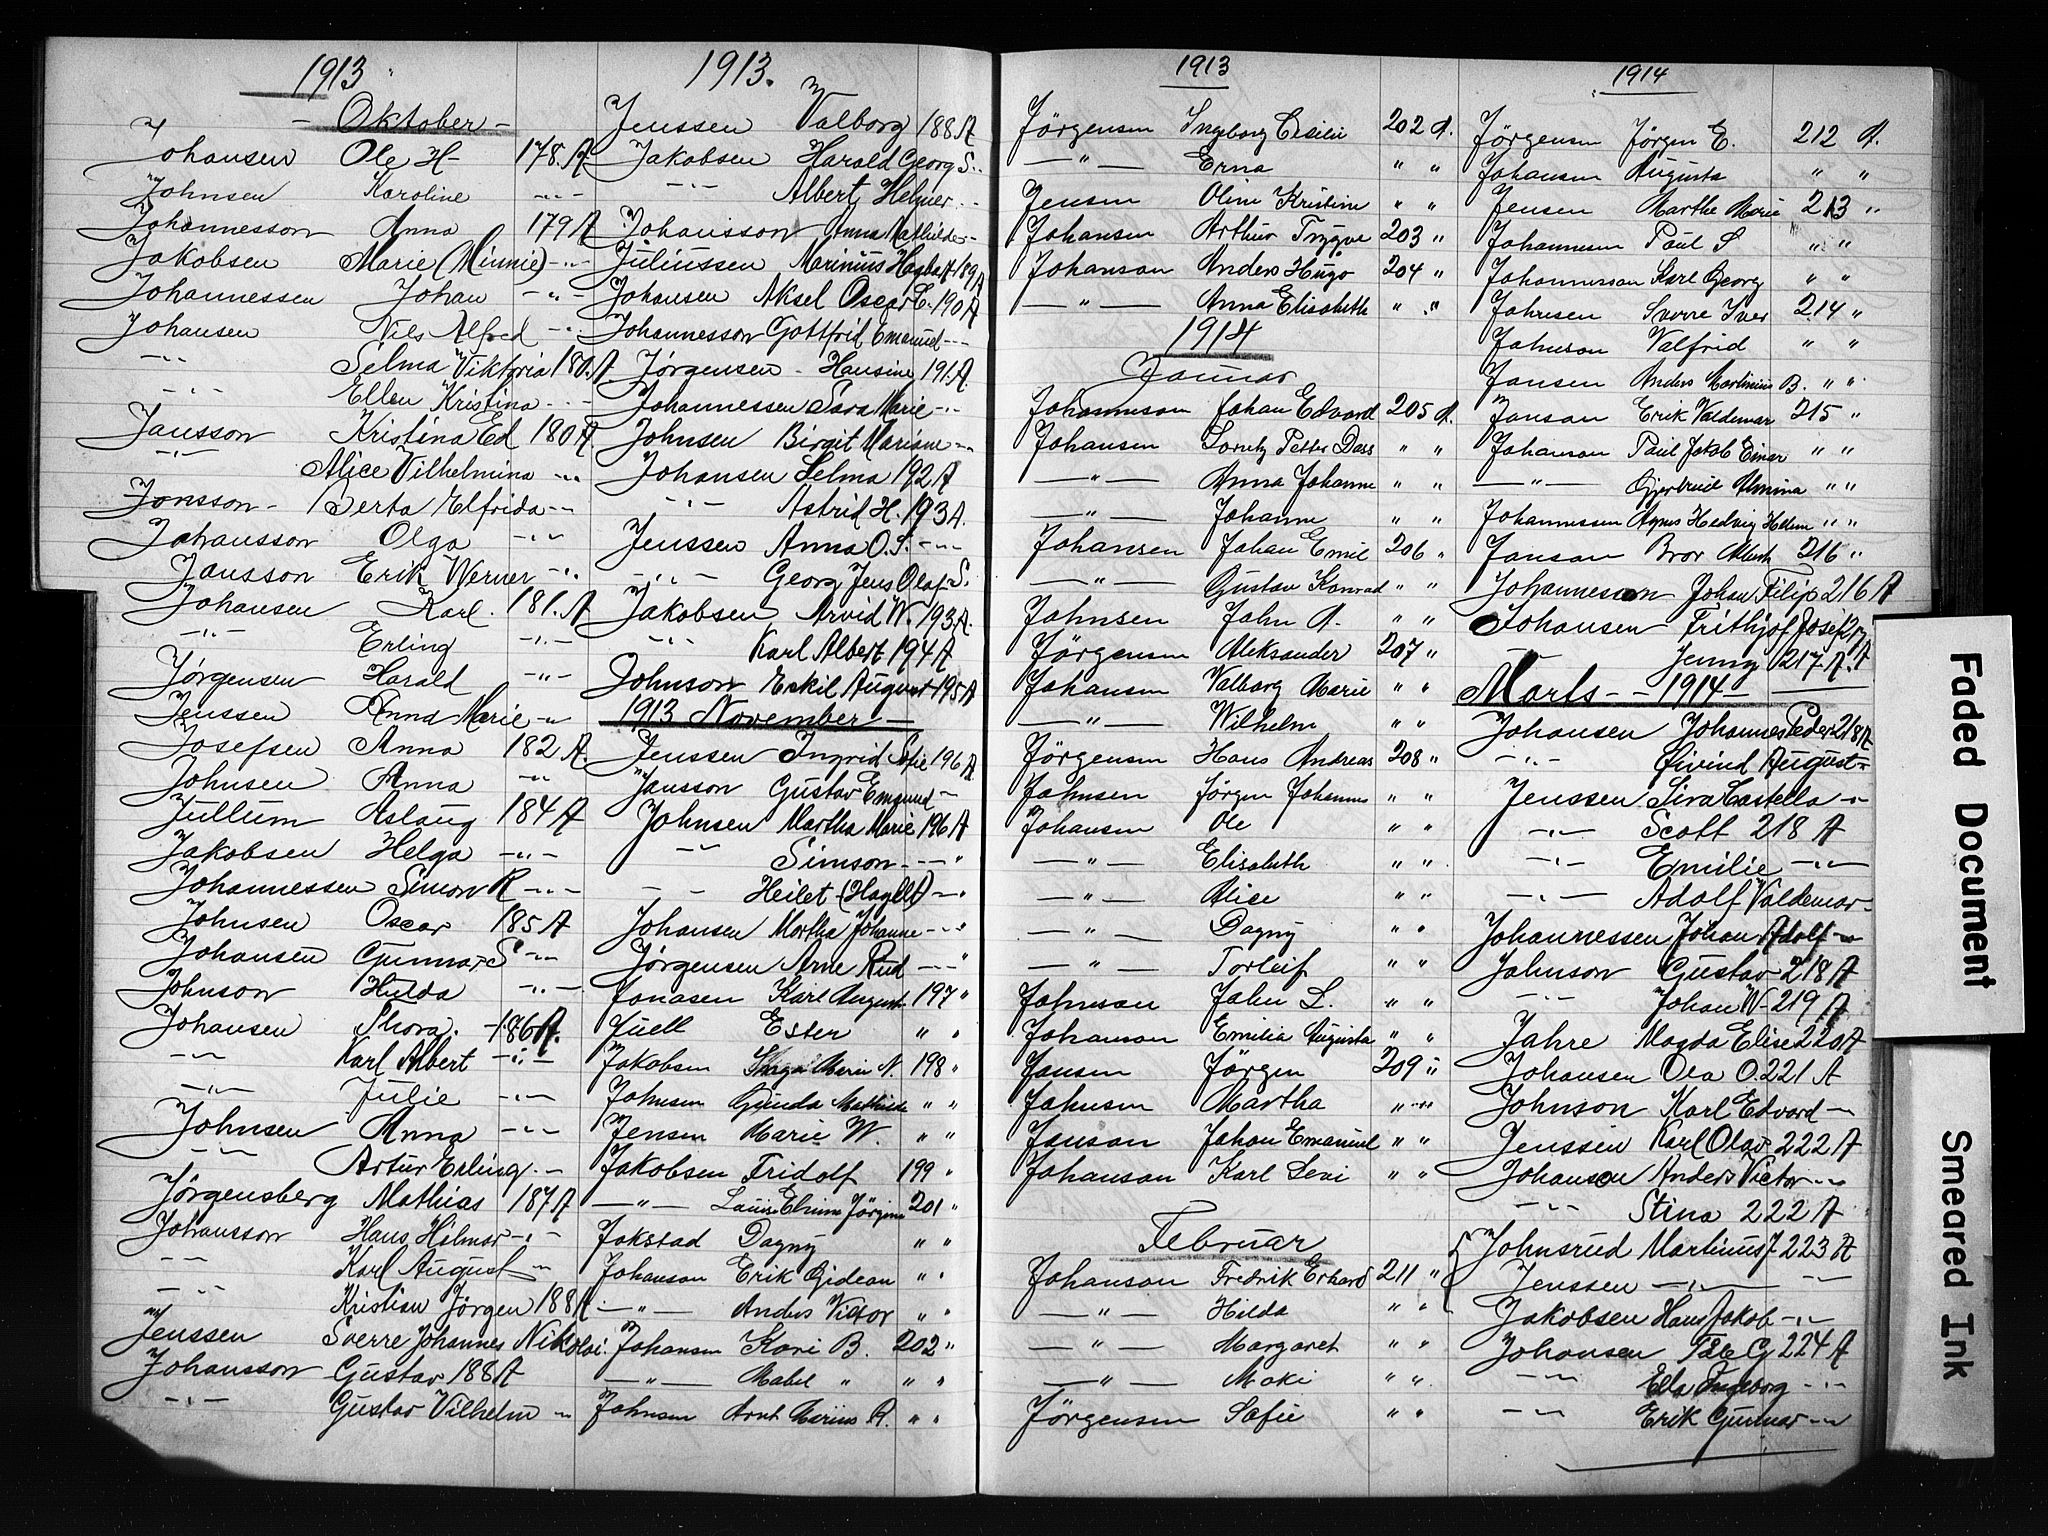 1913
- Oktober -
Johansen Ole H- 178. A
Johnsen Karoline -"-
Johannesson Anna 179 A
Jakobsen Marie (Minnie) -"-
Johannessen Johan -"-
Johansen Nils Alfred -"-
-"- Selma Viktoria 180. A
-"- Ellen Kristina -"-
Jansson Kristina Ed 180 A
-"- Alice Vilhelmina -"-
Jonsson - Berta Elfrida -"-
Johansson Olga -"-
Jansson Erik Werner -"-
Johansen Karl. 181. A
-"- Erling -"-
Jørgensen Harald -"-
Jenssen Anna Marie -"-
Josefsen Anna 182 A.
Johnsen Anna -"-
Jullum Aslaug 184 A
Jakobsen Helga -"-
Johannessen Simon R -"-
Johnsen Oscar 185 A
Johansen Gunnar S -"-
Johnson Hulda -"-
Johansen Thora. -186 A.
-"- Karl Albert -"-
-"- Julie -"-
Johnsen Anna -"-
-"- Artur Erling. -
Jørgensberg Mathias 187 A
Johansson Hans Hilmar -"-
-"- Karl August -"-
-"- Kristian Jörgen 188 A
Jenssen Sverre Johannes Nikolai.
Johansson Gustav 188 A
-"- Gustav Vilhelm -"-
1913.
Jenssen Valborg 188 A
Jakobsen Harald Georg S. "
-"- Albert Helmer. "
Johansson Anna Mathilde -
Juliussen Marinius Hagbart 189 A
Johansen Aksel Oscar E. 190 A
Johannesson Gottfrid Emanuel -"-
Jørgensen - Hansine 191 A.
Johannessen Sara Marie -"-
Johnsen Birgit Mariane -"-
Johansen Selma 192 A
-"- Astrid H. 193 A.
Jenssen Anna O. S. -"-
-"- Georg Jens Olaf S.
Jakobsen Arvid W. 193 A.
-"- Karl Albert 194 A
Johnson Eskil August 195 A
1913 November -
Jenssen Ingrid Sofie 196 A
Jansson Gustav Emanuel -
Johnsen Martha Marie 196 A
-"- Simson - -"
- - Heilet (Hagelt) -"
Johansen Martha Johanne -"
Jørgensen Arne Rud -"
Jonasen Karl August 197 "
Juell Ester " "
Jakobsen Marie N. 198 "
Johnsen Gunda Mathilde " "
Jensen Marie W. " "
Jakobsen Fridolf 199 "
-"- Jörgine 201 "
Jakstad Dagny " "
Johanson Erik Gidean " "
-"- Anders Victor " "
Johansen Kari B. 202 "
-"- Mabel " " "
Johnsen Arnt A. " "
1913
Jørgensen Ingeborg Cesilie 202 A.
-"- Erna " "
Jensen Oline Kristine " "
Johansen Arthur Trygve 203 "
Johanson Anders Hugo 204 "
-"- Anna Elisabeth " "
1914
Januar
Johannison Johan Edvard 205 A.
Johansen Petter Dass " "
-"- Anna Johanne " "
-"- Johanne " "
Johansen Johan Emil 206 "
-"- Gustav Konrad " "
Johnsen John A. " "
Jørgensen Aleksander 207 "
Johansen Valborg Marie " "
-"- Wilhelm " "
Jørgensen Hans Andreas 208 "
Johnsen Jörgen Johannes " "
Johansen Ole " "
-"- Elisabeth " "
-"- Alice " "
-"- Dagny " "
-"- Torleif " "
Johnson John L. " "
Johanson Emilia Augusta " "
Jansen Jørgen 209 "
Johnsen Martha " "
Janson Johan Emanuel " "
Johanson Karl Levi " "
Februar
Johanson Fredrik Erhard 211 "
-"- Hilda " "
-"- Margaret " "
-"- Maki " "
Jørgensen Sofie " "
1914
Jørgensen Jørgen E. 212 A.
Johansen Augusta " "
Jensen Marthe Marie 213 "
Johannesen Paul S " "
Johannesson Karl Georg " "
Johnsen Sverre Iver 214 "
Johnson Valfrid " "
Jansen Anders Martinius B. " "
Janson Erik Valdemar 215 "
Johanson Paul Jakob Einar " "
-"- Gjertrud Almina " "
Johannessen Agnes Hedvig Helene " "
Janson Bror Albert 216 "
Johannesson Johan Filip 216 A
Johansen Frithjof Josef 217 A
- Jenny 217 A.
Marts - - 1914 -
Johansen Johannes Peder 218 A
-"- Eivind August -"
Jenssen Siva Castella -"-
-"- Scott 218 A
-"- Emilie -"-
-"- Adolf Valdemar -
Johannessen Johan Adolf -"-
Johnson Gustav 218 A
-"- Johan W. 219 A
Jahre Magda Elise 220 A
Johansen Dea O. 221 A
Johnson Karl Edvard -"-
Jenssen Karl Olav 222 A
Johansen Anders Victor -"-
-"- Stina 222 A
Johnsrud Martinus J 223 A
Jenssen -"- -"-
Jakobsen Hans Jakob -"-
Johansen G 224 A
-"- Ella Ingeborg -"-
-"- Erik Gunnar -"-
Faded Document
Smeared Ink